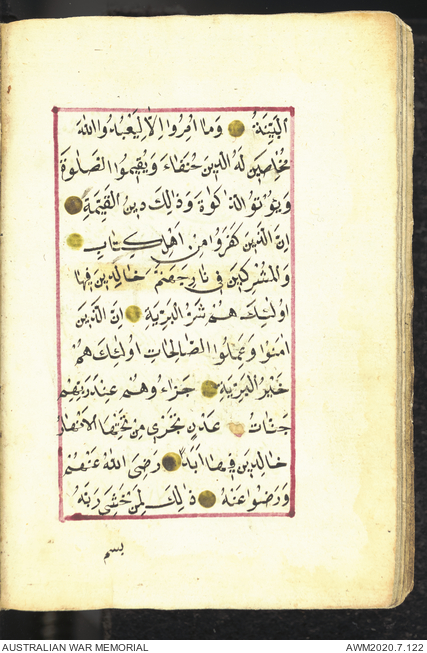 الْبَيِّنَةُ وَمَا اُمِرُوا اِلَّا لِيَعْبُدُوا اللّٰهَ
مُخْلِصِينَ لَهُ الدِّينَ حُنَفَاءَ وَيُقِيمُوا الصَّلٰوةَ
وَيُؤْتُوا الزَّكٰوةَ وَذٰلِكَ دِينُ الْقَيِّمَةِ
اِنَّ الَّذِينَ كَفَرُوا مِنْ اَهْلِ الْكِتَابِ
وَالْمُشْرِكِينَ فِي نَارِ جَهَنَّمَ خَالِدِينَ فِيهَا
اُولٰئِكَ هُمْ شَرُّ الْبَرِيَّةِ اِنَّ الَّذِينَ
اٰمَنُوا وَعَمِلُوا الصَّالِحَاتِ اُولٰئِكَ هُمْ
خَيْرُ الْبَرِيَّةِ جَزَاؤُهُمْ عِنْدَ رَبِّهِمْ
جَنَّاتُ عَدْنٍ تَجْرِي مِنْ تَحْتِهَا الْاَنْهَارُ
خَالِدِينَ فِيهَا اَبَدًا رَضِيَ اللّٰهُ عَنْهُمْ
وَرَضُوا عَنْهُ ذٰلِكَ لِمَنْ خَشِيَ رَبَّهُ
بسم
AUSTRALIAN WAR MEMORIAL AWM2020.7.122